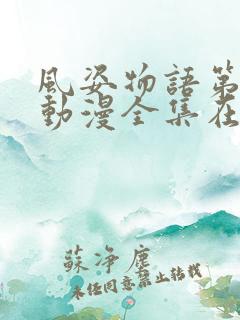 風姿物語第
動漫全集在
蘇淨塵
未经同意禁止转载